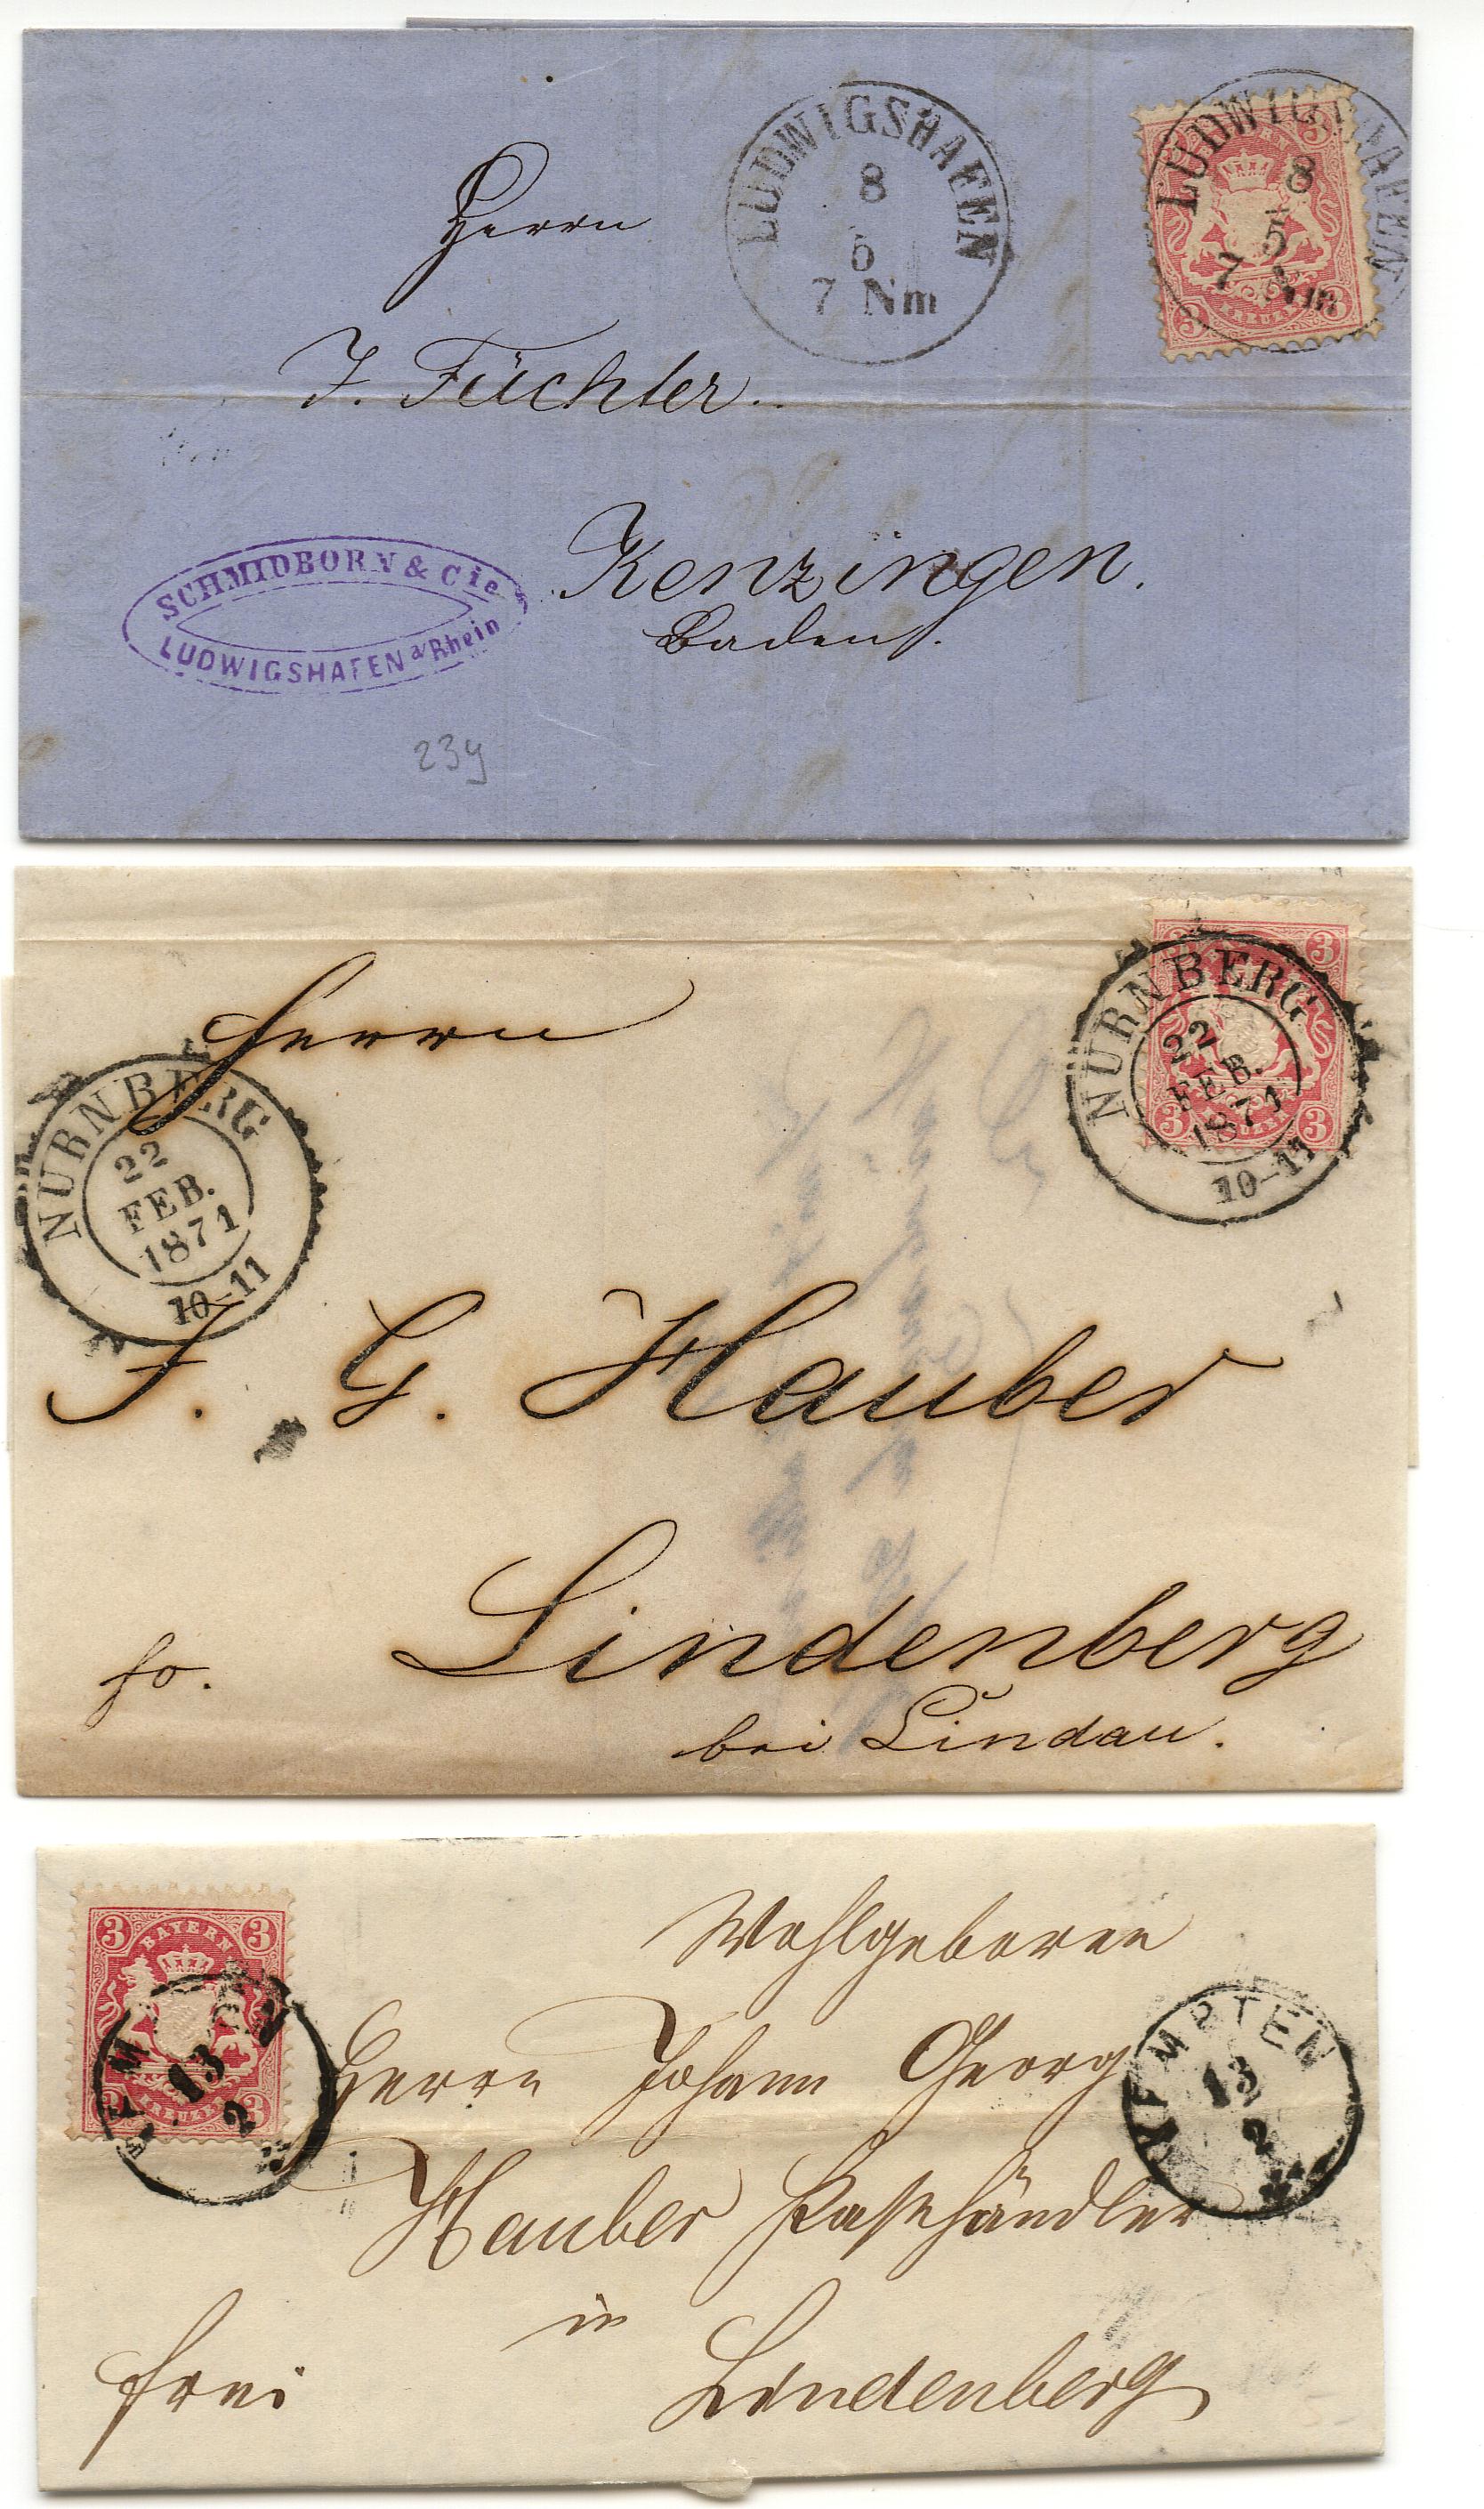 LUDWIGSHAFEN
8
5
7 Nm
LUDWIGSHAFEN
8
5
7 Nm
3
3
3
KREUZER
Herrn
J. Füchter.
Kenzingen.
Baden.
SCHMIDBORN & Cie
LUDWIGSHAFEN a/Rhein
239
3
3
3
NÜRNBERG
22
FEB.
1871
10-11
Herrn
NÜRNBERG
22
FEB.
1871
10-11
J. G. Hauber
Lindenberg
fr.
bei Lindau.
3 BAYERN 3
KREUZER 3
KEMPTEN
13
2
Wohlgeboren
Herrn Johann Georg
KEMPTEN
13
2
Hauber
in
frei
Lindenberg